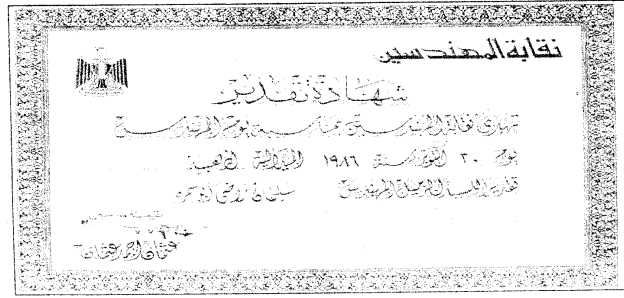 نقابة المهندسين
شهادة تقدير
تهدى نقابة المهندسين بمناسبة يوم المهندس
يوم ٢٠ أكتوبر سنة ١٩٨٦ الميدالية الذهبية
تقديراً للسيد الزميل المهندس سليمان
عثمان أحمد عثمان